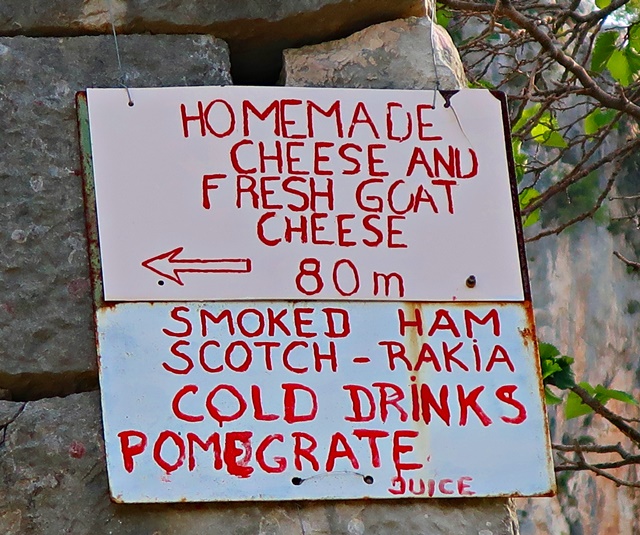 HOMEMADE
CHEESE AND
FRESH GOAT
CHEESE
80m
SMOKED HAM
SCOTCH - RAKiA
COLD DRiNKS
POMEGRATE
JUICE